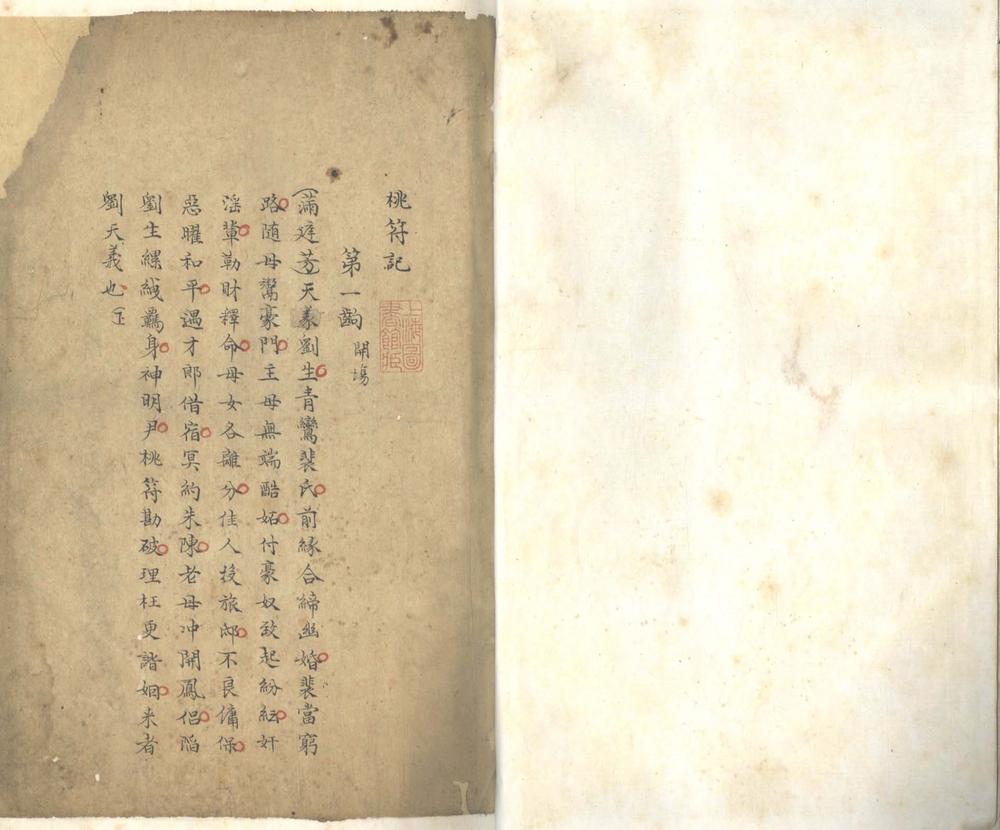 桃符記
第一齣 開場
上海圖書館藏
(滿庭芳)天義劉生青鸞裴氏前緣合締幽婚裴當窮
路随母鬻豪門主母無端酷妬付豪奴致起紛紜奸
淫輩勒財釋命母女各離分佳人投旅邸不良傭保
惡曜和平遇才郎借宿冥約朱陳老母冲開鳳侣陷
劉生縲絏羈身神明尹桃符勘破理枉更諧姻来者
劉天義也(下